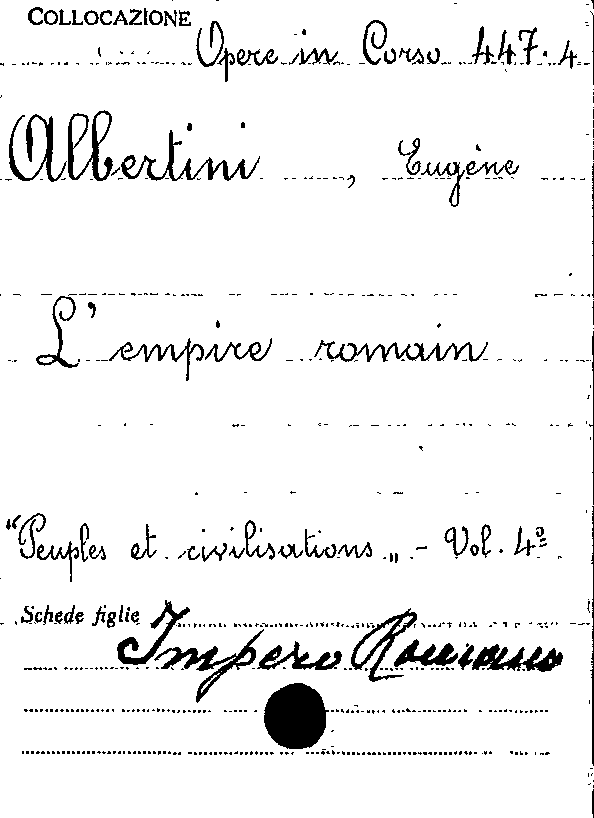 COLLOCAZIONE
Opere in Corso 447.4
Albertini, Eugène
L' empire romain
“Peuples et civilisations„ - Vol. 4º
Schede figlie
Impero Romano